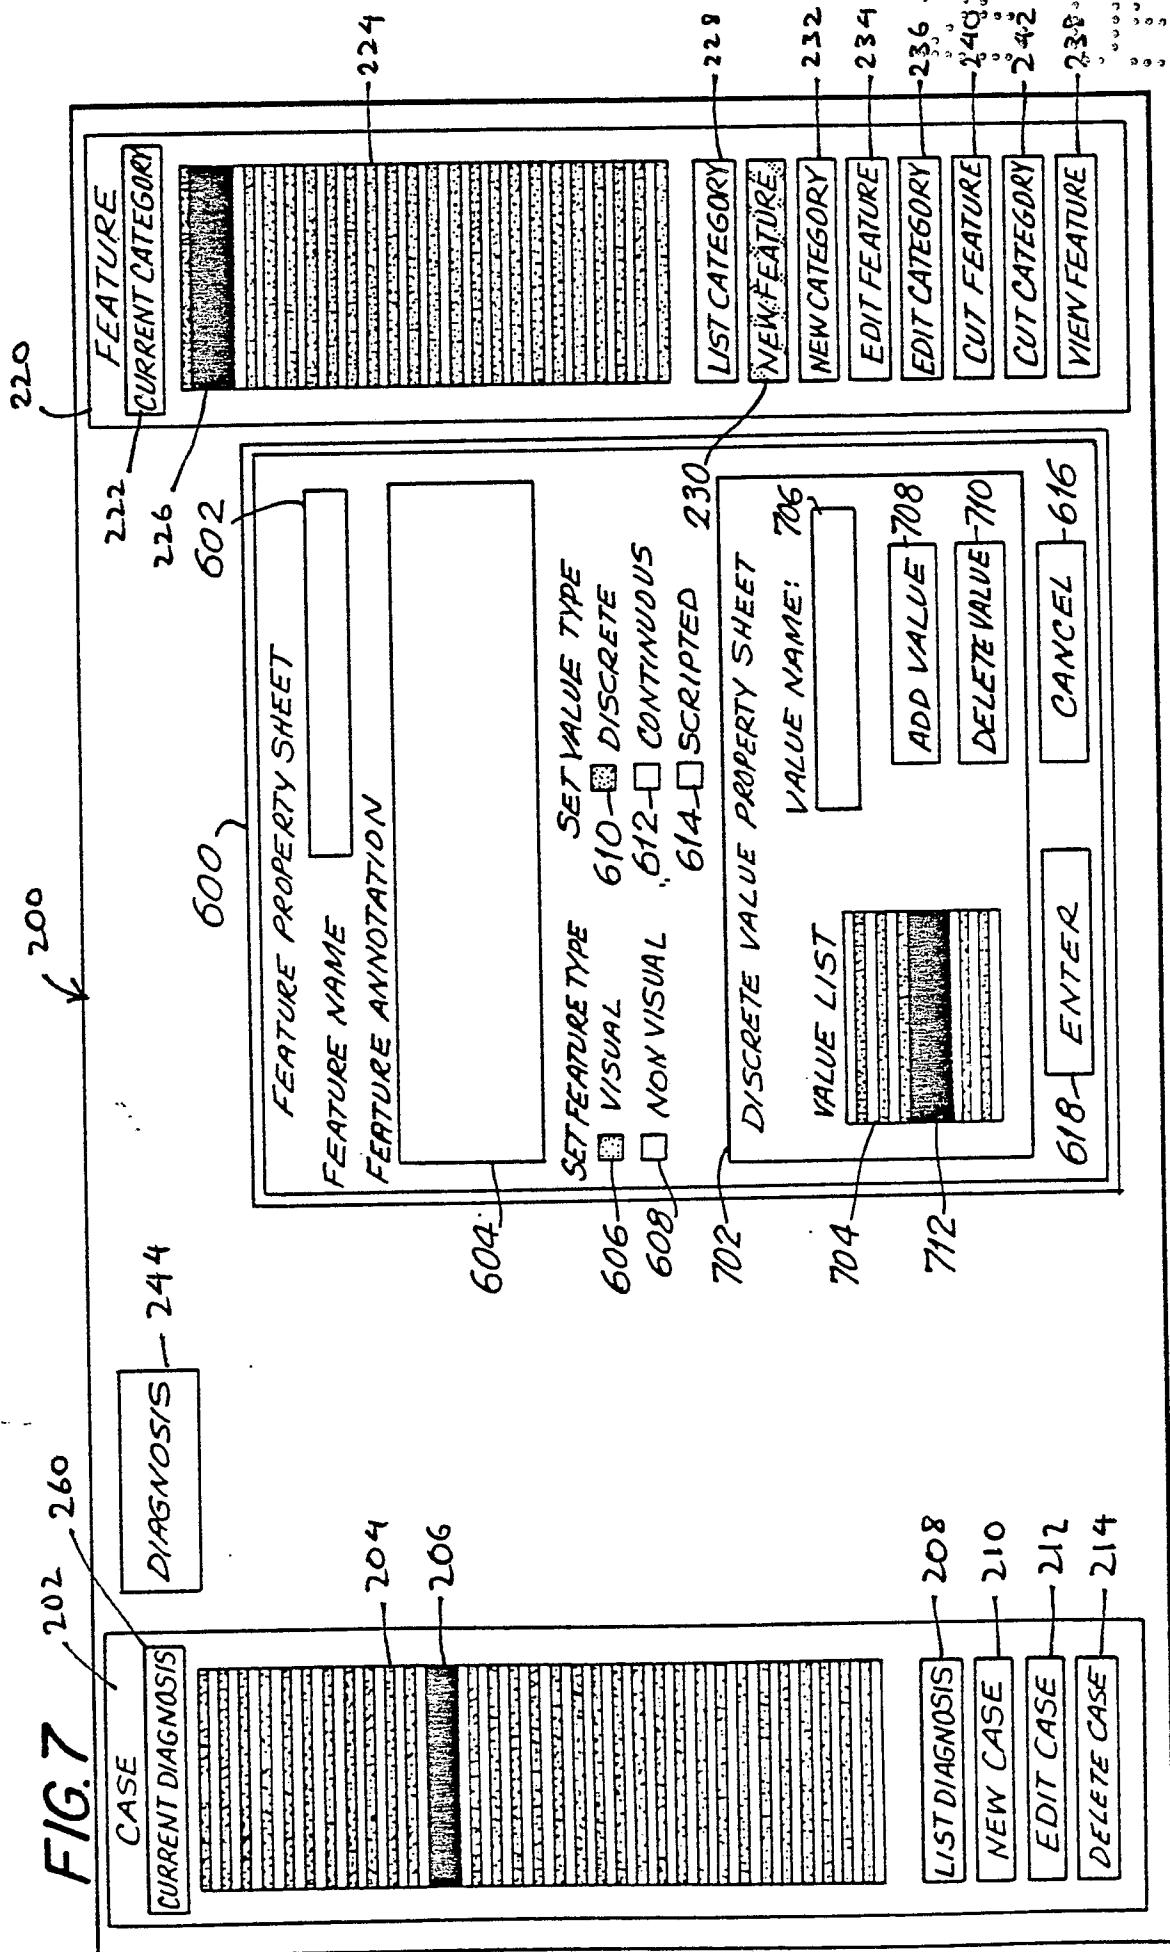 FIG. 7
200
202
CASE
260
CURRENT DIAGNOSIS
204
206
LIST DIAGNOSIS 208
NEW CASE 210
EDIT CASE 212
DELETE CASE 214
DIAGNOSIS 244
600
FEATURE PROPERTY SHEET
FEATURE NAME
602
FEATURE ANNOTATION
604
SET FEATURE TYPE
606 VISUAL
608 NON VISUAL
SET VALUE TYPE
610 DISCRETE
612 CONTINUOUS
614 SCRIPTED
702
DISCRETE VALUE PROPERTY SHEET
VALUE LIST
704
712
VALUE NAME: 706
ADD VALUE 708
DELETE VALUE 710
618 ENTER
CANCEL 616
220
FEATURE
222
CURRENT CATEGORY
226
224
LIST CATEGORY 228
230
NEW FEATURE
NEW CATEGORY 232
EDIT FEATURE 234
EDIT CATEGORY 236
CUT FEATURE 240
CUT CATEGORY 242
VIEW FEATURE 238